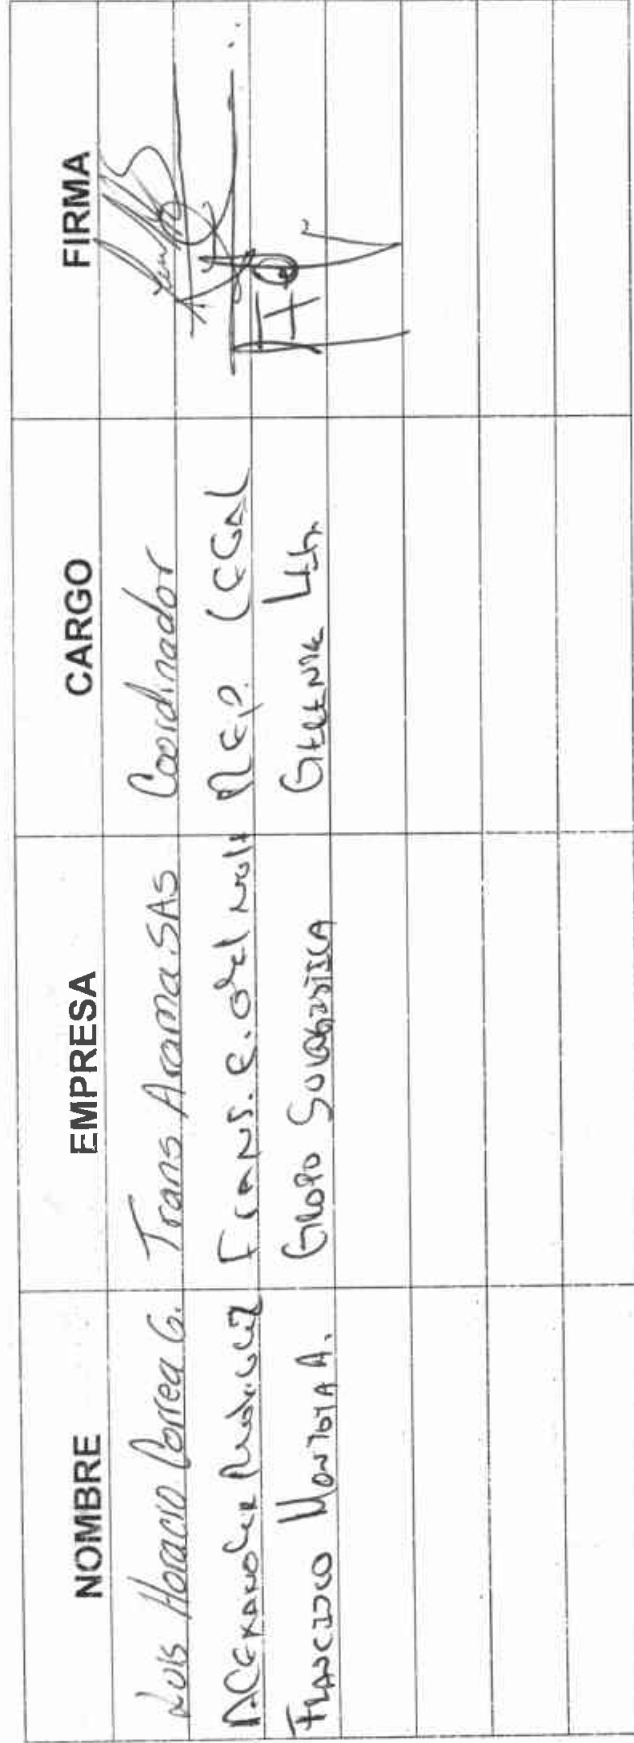 NOMBRE EMPRESA CARGO FIRMA
Luis Horacio Correa G. Trans Arama SAS Coordinador
ALEXANDER Rodriguez TRANS. Rep. LEGAL
FRANCISCO MONTOYA A. GRUPO SOLOGISTICA GERENTE